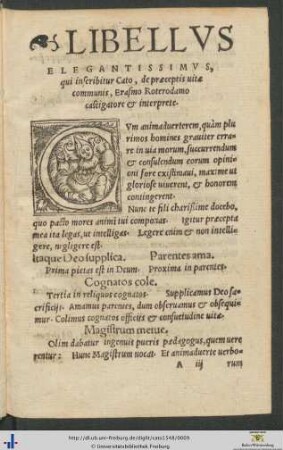 LIBELLVS
ELEGANTISSIMVS,
qui inscribitur Cato, de præceptis uitæ
communis, Erasmo Roterodamo
castigatore & interprete.
CVm animaduerterem, quàm plu
rimos homines grauiter erra-
re in uia morum, succurrendum
& consulendum eorum opinio
oni fore existimaui, maxime ut
gloriose uiuerent, & honorem
contingerent.
Nunc te fili charissime docebo,
quo pacto mores animi tui componas. Igitur præcepta
mea ita legas, ut intelligas. Legere enim & non intelli-
gere, negligere est.
Itaque Deo supplica. Parentes ama.
Prima pietas est in Deum. Proxima in parentes.
Cognatos cole.
Tertia in reliquos cognatos. Supplicamus Deo sa-
crificijs. Amamus parentes, dum obseruamus & obsequi
mur. Colimus cognatos officijs & consuetudine uitæ.
Magistrum metue.
Olim dabatur ingenuis pueris pædagogus, quem uere
rentur: Hunc Magistrum uocat. Et animaduerte uerbo-
A iij rum
http://dl.ub.uni-freiburg.de/diglit/cato1548/0005
© Universitätsbibliothek Freiburg
Baden-Württemberg